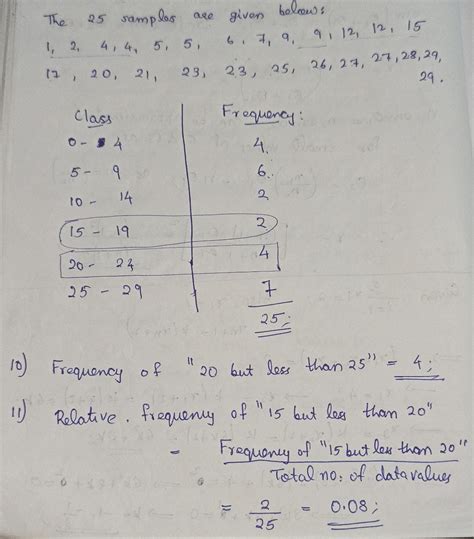 The 25 samples are given below:
1, 2, 4, 4, 5, 5, 6, 7, 9, 9, 12, 12, 15
17, 20, 21, 23, 23, 25, 26, 27, 27, 28, 29,
29.
Class Frequency:
0 - 4 4
5 - 9 6
10 - 14 2
15 - 19 2
20 - 24 4
25 - 29 7
25;
10) Frequency of "20 but less than 25" = 4;
11) Relative frequency of "15 but less than 20"
= Frequency of "15 but less than 20"
Total no: of data values
= 2/25 = 0.08;